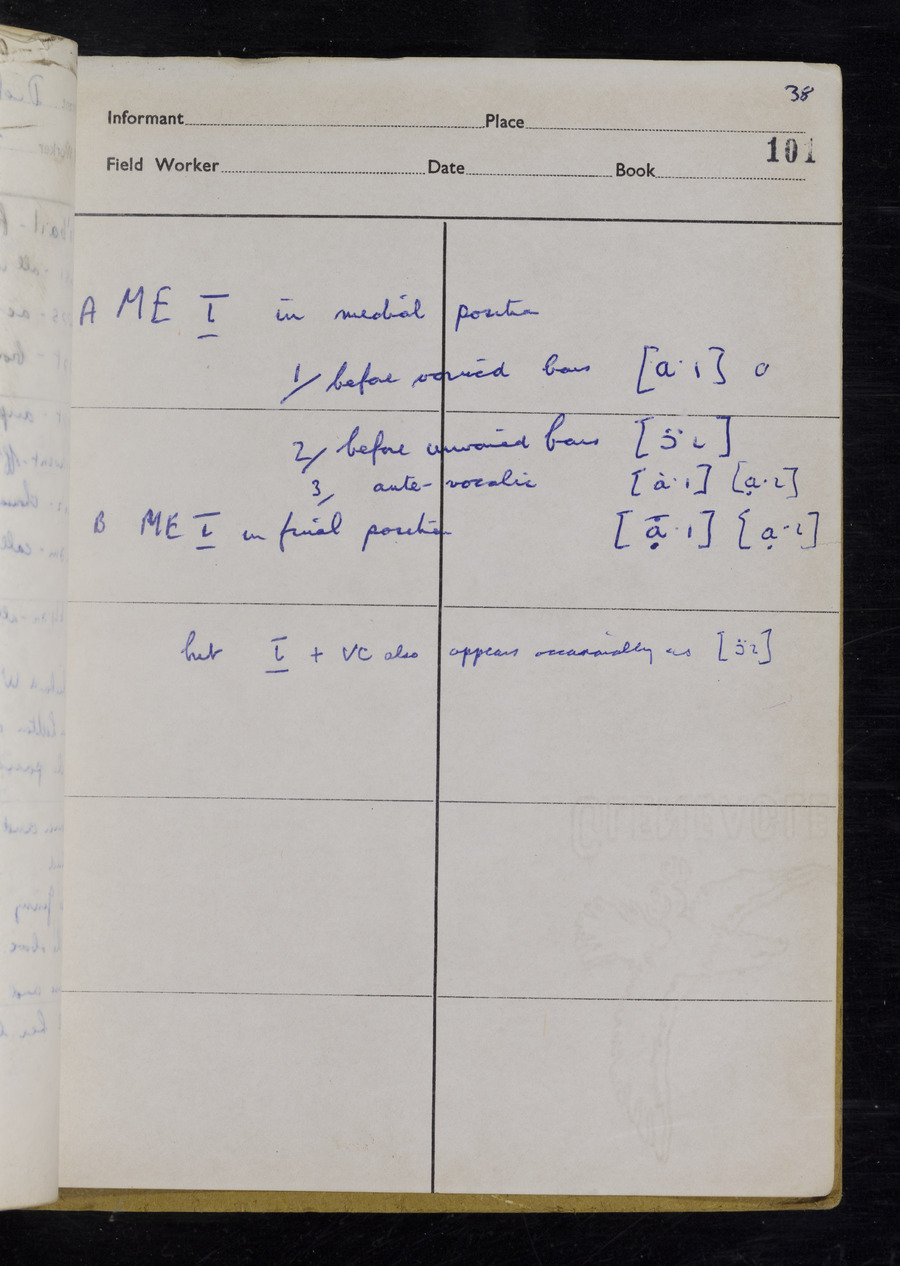 38
Informant Place
101
Field Worker Date Book
A ME Ī in medial position
1/ before voiced cons [a·i]
2/ before unvoiced cons [ɜ̈ɩ]
3/ ante-vocalic [ȧ·i] [ạ·ɩ]
B ME Ī in final position [ạ̄·i] [ạ·ɩ]
but Ī + VC also appears occasionally as [ɜ̈ɩ]